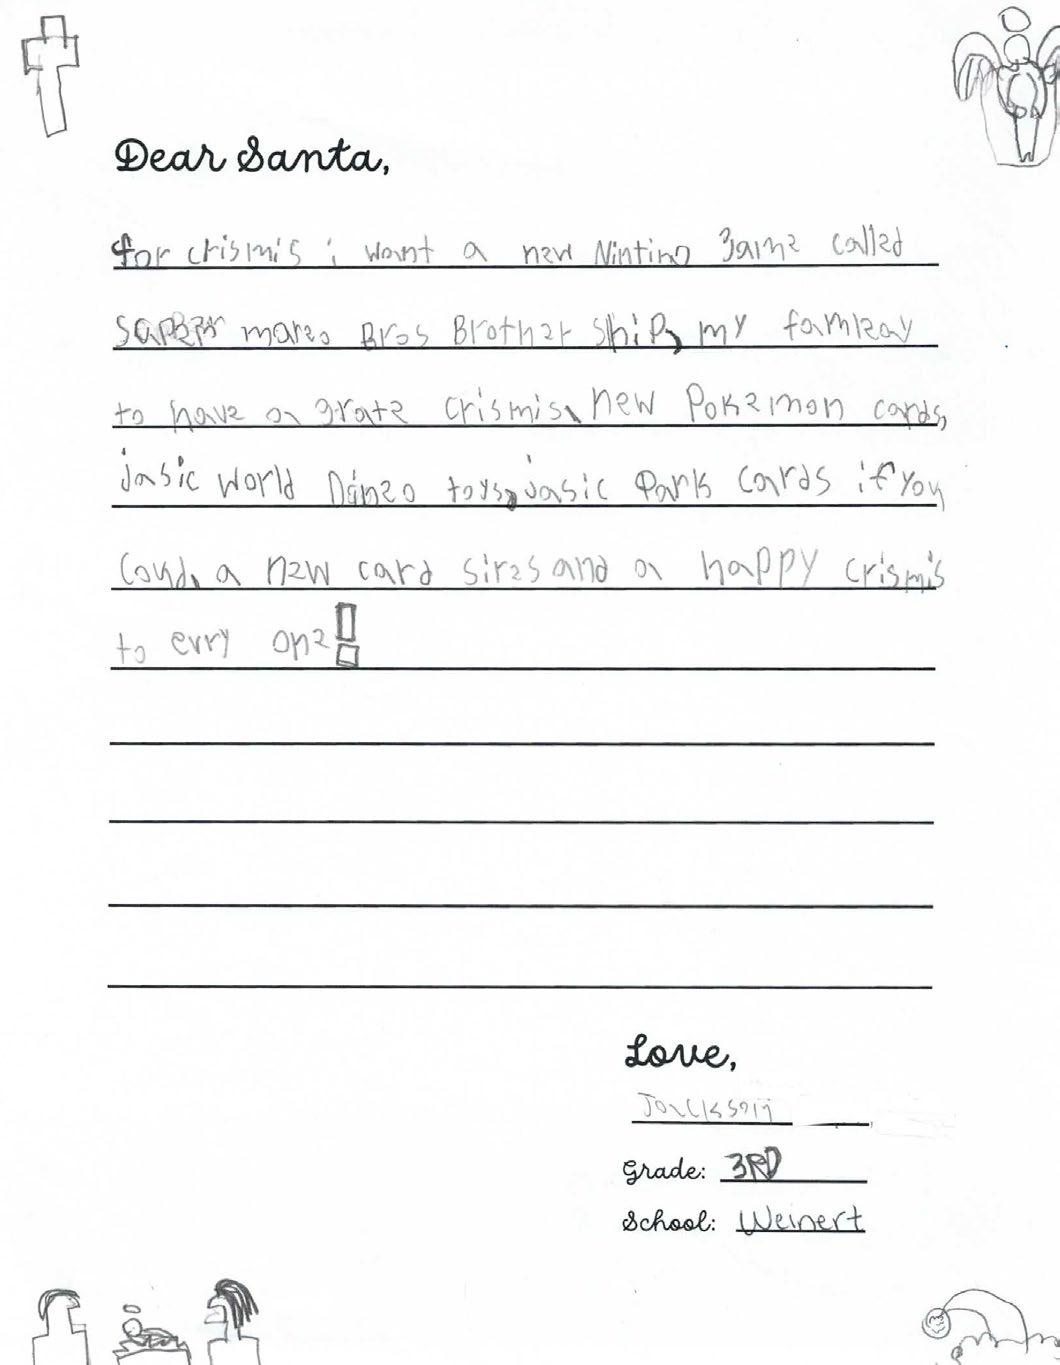 Dear Santa,
for crismis i want a new Nintino game called
mareo Bros Brother ship, my famleay
to have a grate crismis, new Pokemon cards,
jasic world Dineo toys, jasic Park cards if you
coud, a new card sires and a happy crismis
to evry one!
Love,
Jackson
Grade: 3RD
School: Weinert